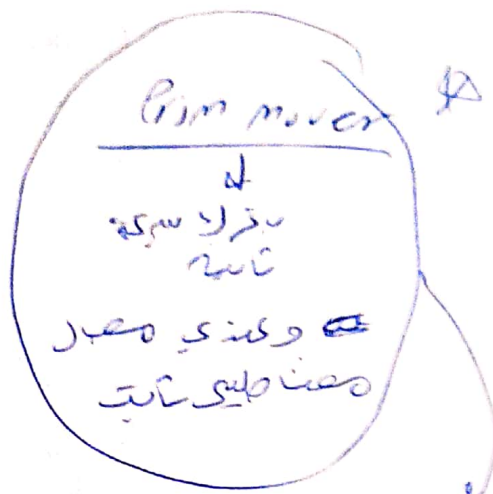 Prim mover
بفرك سرعة
ثابتة
وعندي مصدر
مغناطيسي ثابت